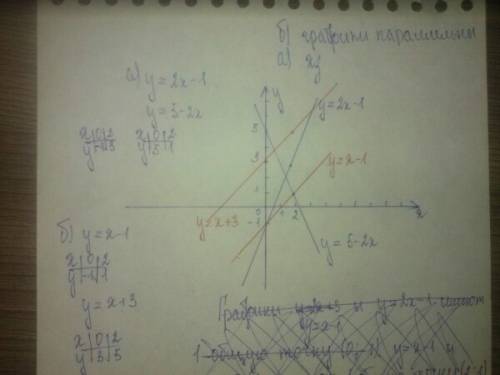 б) графики параллельны
а)
а) y = 2x-1
y = 5-2x
x | 0 | 2
y | -1 | 3
x | 0 | 2
y | 5 | 1
y
y=2x-1
5
3
1
y=x-1
0 1 2
x
-1
y=x+3
y = 5-2x
б) y = x-1
x | 0 | 2
y | -1 | 1
y = x+3
x | 0 | 2
y | 3 | 5
Графики y=2x-1 имеют
y=x-1
1 общую точку (0;-1) y=x-1 и